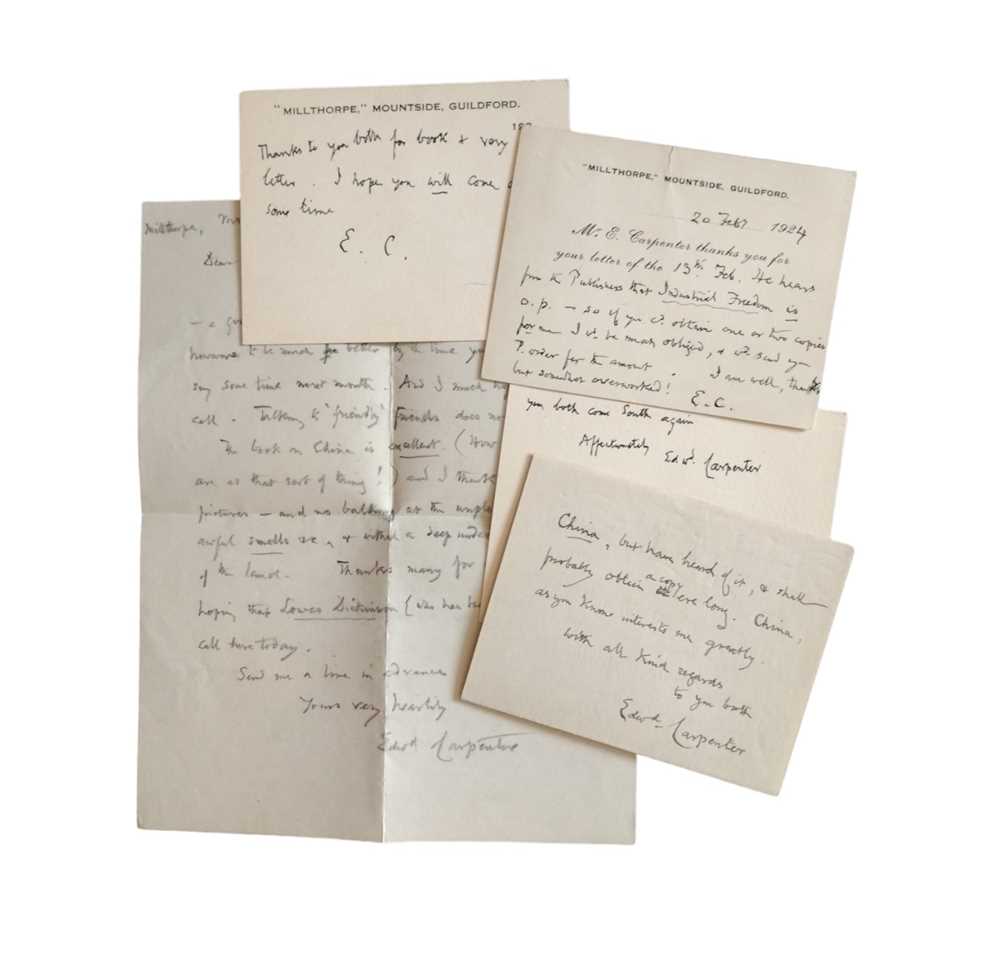 "MILLTHORPE," MOUNTSIDE, GUILDFORD.
192
Thanks to you both for book & very
letter. I hope you will come
some time
E. C.
"MILLTHORPE," MOUNTSIDE, GUILDFORD.
20 Feby 1924
Mr. E. Carpenter thanks you for
your letter of the 13th Feb. He hears
from the Publishers that Industrial Freedom is
o.p. — so if you cd. obtain one or two copies
for me I wd. be much obliged, & wd. send you
P. order for the amount. I am well, thanks
but somehow overworked! E.C.
Millthorpe,
Dear
— a
however to be much better by the time you
say some time next month. And I much
call. Talking to "friendly" friends does not
The book on China is excellent. (How
are at that sort of thing!) and I think
pictures — and no
awful smells & with a deep
of the land. Thanks many for
hoping that Lowes Dickinson (who has
call here today.
Send me a line in advance
Yours very heartily
Edwd Carpenter
you both come South again
Affectionately Edwd. Carpenter
China, but have heard of it, & shall
probably obtain a copy ere long. China,
as you know interests me greatly.
with all kind regards
to you both
Edwd. Carpenter